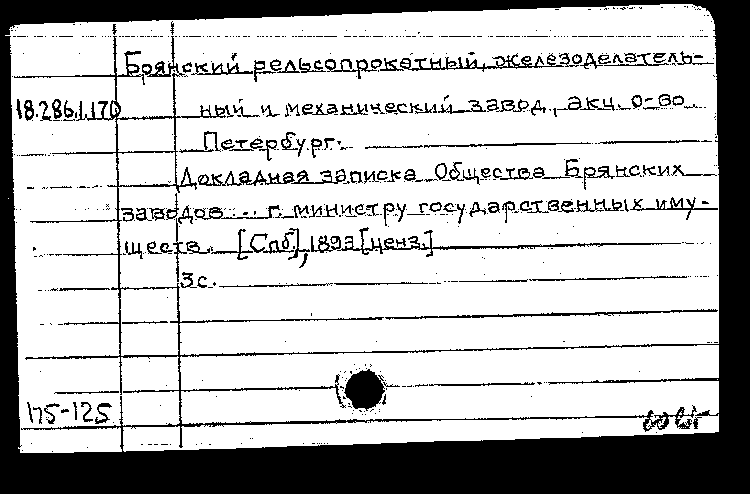 Брянский рельсопрокатный, железоделатель-
18.286.1.170 ный и механический завод, акц. о-во.
Петербург.
Докладная записка Общества Брянских
заводов ... г. министру государственных иму-
ществ. [Спб], 1893 [ценз.]
3с.
175-125